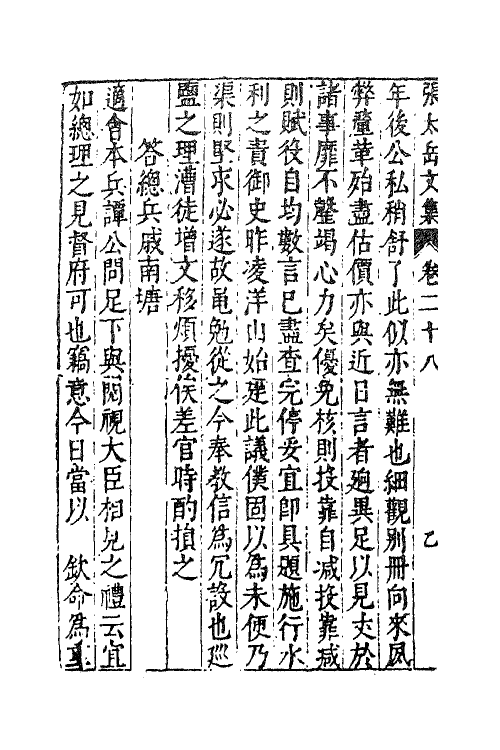 張太岳文集 卷二十八 乙
年後公私稍舒了此似亦無難也細觀別冊向來夙
弊釐革殆盡估價亦與近日言者逈異足以見丈於
諸事靡不罄竭心力矣優免核則投靠自減投靠減
則賦役自均數言已盡查完停妥宜即具題施行水
利之責御史昨凌洋山始建此議僕固以為未便乃
渠則堅求必遂故黽勉從之今奉教信為冗設也巡
鹽之理漕徒增文移煩擾俟差官時酌損之
答總兵戚南塘
適會本兵譚公問足下與閱視大臣相見之禮云宜
如總理之見督府可也竊意今日當以 欽命為重